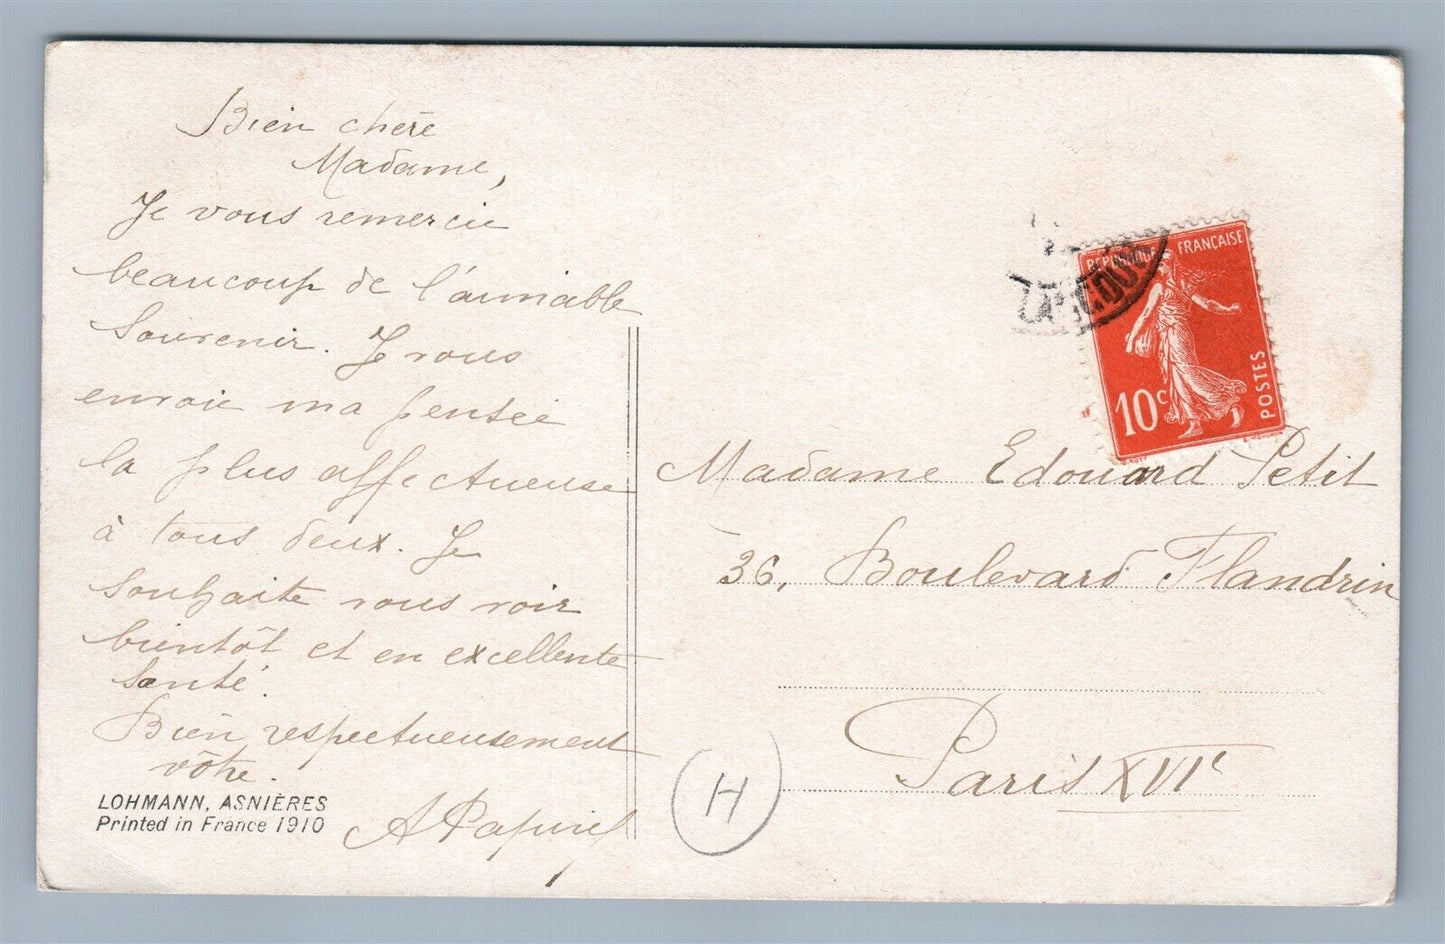 Bien chère
Madame,
Je vous remercie
beaucoup de l'aimable
Souvenir. Je vous
envoie ma pensée
la plus affectueuse
à tous deux. Je
souhaite vous voir
bientôt et en excellente
santé.
Bien respectueusement
vôtre.
LOHMANN, ASNIÈRES
Printed in France 1910
REPUBLIQUE FRANÇAISE
10c
POSTES
Madame Edouard Petit
36, Boulevard Flandrin
Paris XVIe
H